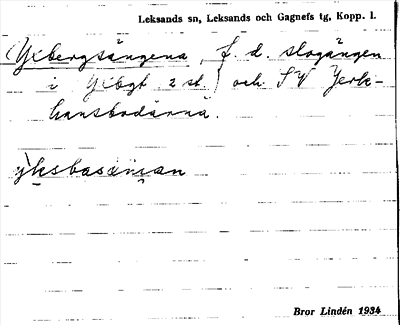 Leksands sn, Leksands och Gagnefs tg, Kopp. l.
(Yxbergsängena, f. d. slogängen
i Yxbgt 2 st.) och SV Jerk-
hansbodarna.
yksbasænan
Bror Lindén 1934